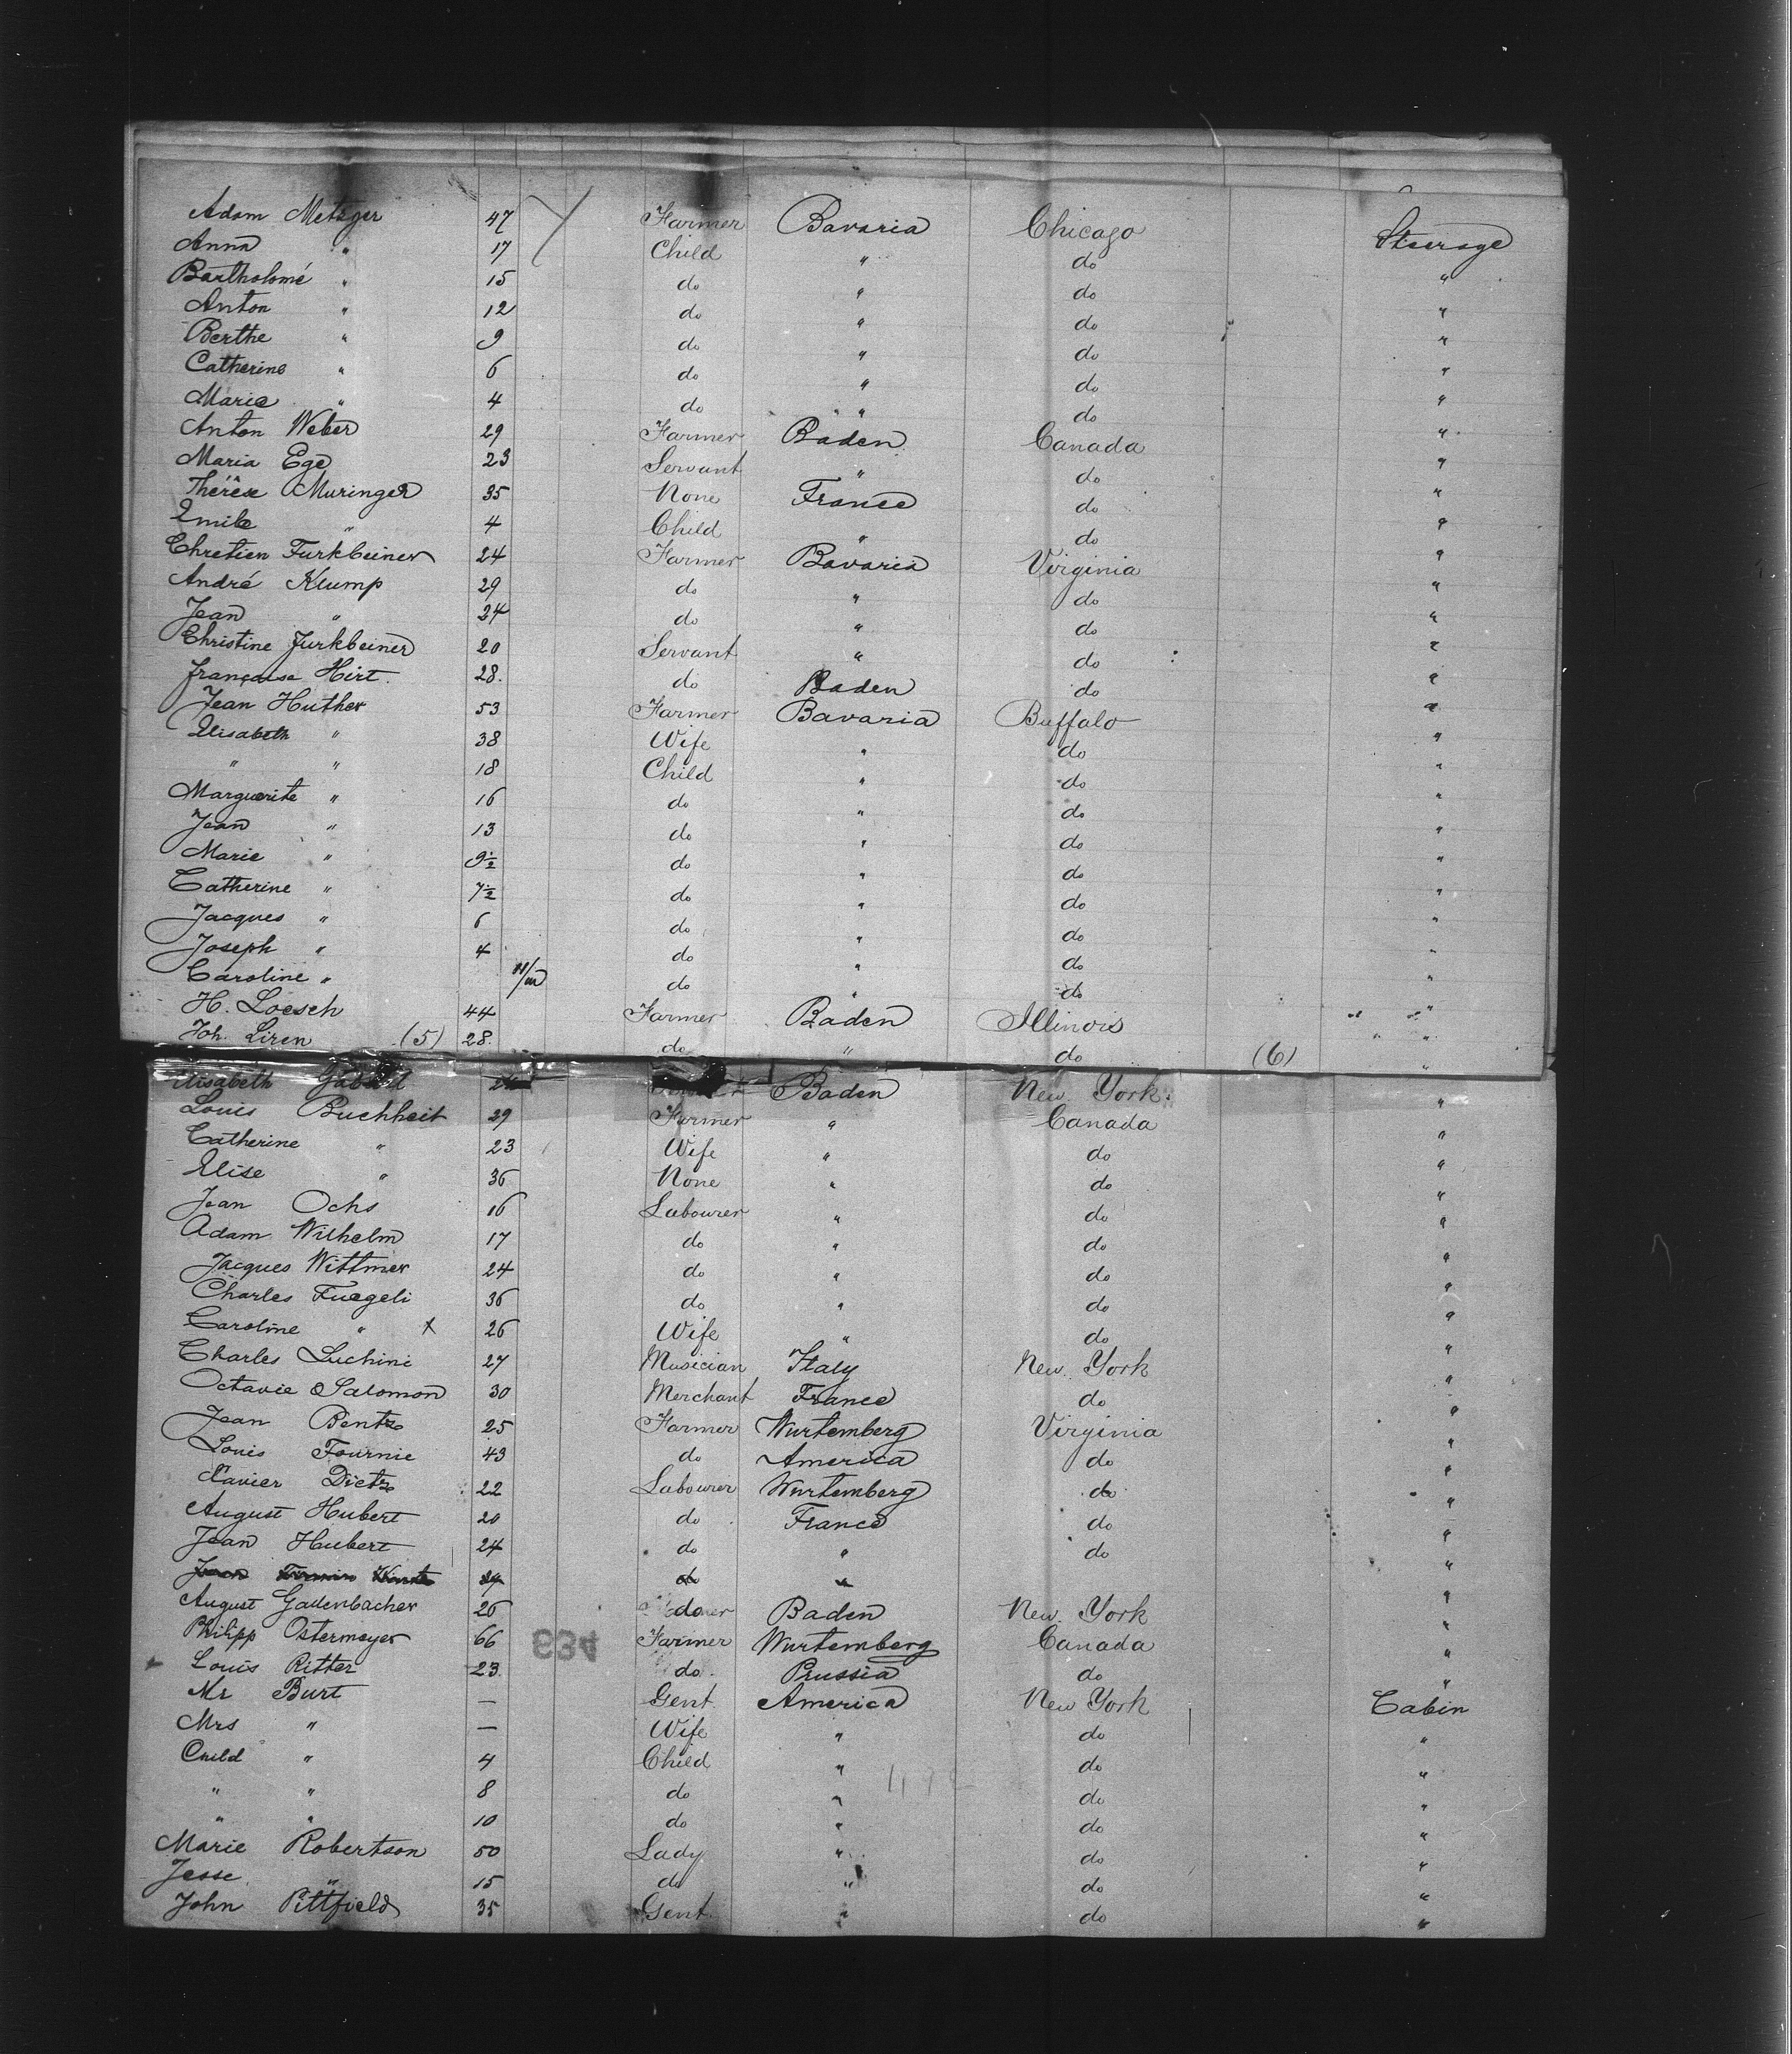 Adam Metzger 47 Farmer Bavaria Chicago Steerage
Anna " 17 Child " do "
Bartholomé " 15 do " do "
Anton " 12 do " do "
Berthe " 9 do " do "
Catherine " 6 do " do "
Marie " 4 do " do "
Anton Weber 29 Farmer Baden Canada "
Maria Ege 23 Servant " do "
Thérèse Muringer 35 None France do "
Emile " 4 Child " do "
Chretien Furkbeiner 24 Farmer Bavaria Virginia "
André Klump 29 do " do "
Jean " 24 do " do "
Christine Furkbeiner 20 Servant " do "
Françoise Hirt. 28. do Baden do "
Jean Huther 53 Farmer Bavaria Buffalo "
Elisabeth " 38 Wife " do "
" " 18 Child " do "
Marguerite " 16 do " do "
Jean " 13 do " do "
Marie " 9½ do " do "
Catherine " 7½ do " do "
Jacques " 6 do " do "
Joseph " 4 do " do "
Caroline " 11/m do " do "
H. Loesch 44 Farmer Baden Illinois "
Joh. Liren (5) 28. do " do (6) "
Elisabeth Baden New York. "
Louis Buchheit 29 Farmer " Canada "
Catherine " 23 Wife " do "
Elise " 36 None " do "
Jean Ochs 16 Labourer " do "
Adam Wilhelm 17 do " do "
Jacques Wittmer 24 do " do "
Charles Fuegeli 36 do " do "
Caroline " x 26 Wife " do "
Charles Luchini 27 Musician Italy New York "
Octavie Salomon 30 Merchant France do "
Jean Bentz 25 Farmer Wurtemberg Virginia "
Louis Fournie 43 do America do "
Xavier Dietz 22 Labourer Wurtemberg do "
August Hubert 20 do France do "
Jean Hubert 24 do " do "
Jean do " "
August Gallenbacher 26 do Baden New York "
Philipp Ostermeyer 66 634 Farmer Wurtemberg Canada "
Louis Ritter 23. do. Prussia do "
Mr Burt — Gent America New York Cabin
Mrs " — Wife " do "
Child " 4 Child " do "
" " 8 do " do "
" " 10 do " do "
Marie Robertson 50 Lady " do "
Jesse " 15 do " do "
John Pittfield 35 Gent. " do "